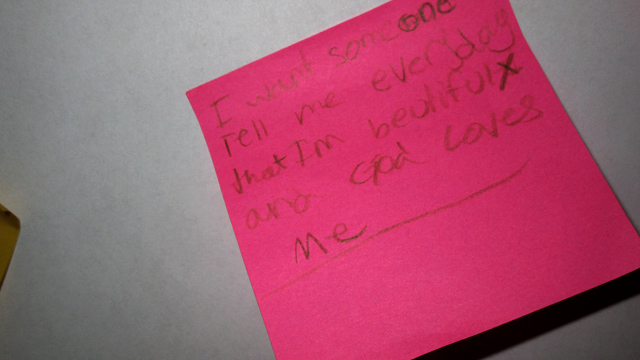 I want someone
Tell me everyday
that I'm beutiful
and God Loves
Me